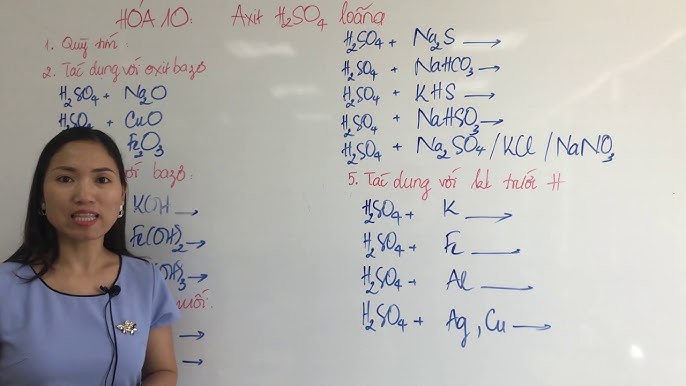 HÓA 10: Axit H₂SO₄ loãng
1. Quỳ tím :
2. Tác dụng với oxit bazơ
H₂SO₄ + Na₂O
H₂SO₄ + CuO
Fe₂O₃
bazơ.
KOH →
Fe(OH)₂ →
)₃ →
muối.
→
→
H₂SO₄ + Na₂S →
H₂SO₄ + NaHCO₃ →
H₂SO₄ + KHS →
H₂SO₄ + NaHSO₃ →
H₂SO₄ + Na₂SO₄ / KCl / NaNO₃
5. Tác dụng với kl trước H
H₂SO₄ + K →
H₂SO₄ + Fe →
H₂SO₄ + Al →
H₂SO₄ + Ag, Cu →